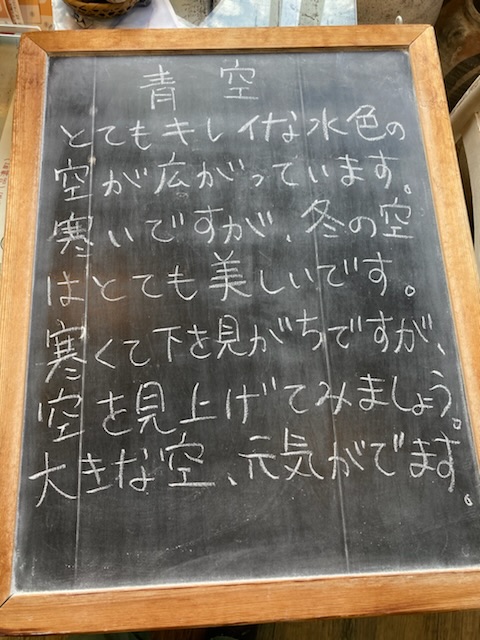 青空
とてもキレイな水色の
空が広がっています。
寒いですが、冬の空
はとても美しいです。
寒くて下を見がちですが、
空を見上げてみましょう。
大きな空、元気がでます。